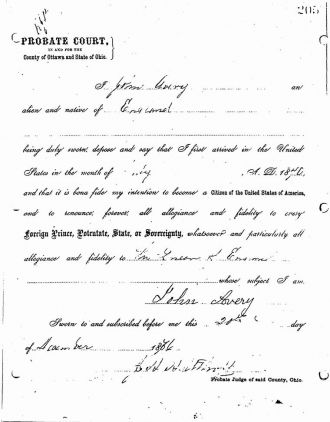 205
PROBATE COURT,
IN AND FOR THE
County of Ottawa and State of Ohio.
I John Avery an
alien and native of England
being duly sworn, depose and say that I first arrived in the United
States in the month of A. D. 18
and that it is bona fide my intention to become a Citizen of the United States of America,
and to renounce, forever, all allegiance and fidelity to every
Foreign Prince, Potentate, State, or Sovereignty, whatsoever and particularly all
allegiance and fidelity to the Queen of
whose subject I am.
John Avery
Sworn to and subscribed before me this day
of 18
Probate Judge of said County, Ohio.